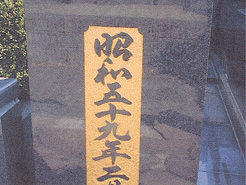 昭和五十九年二